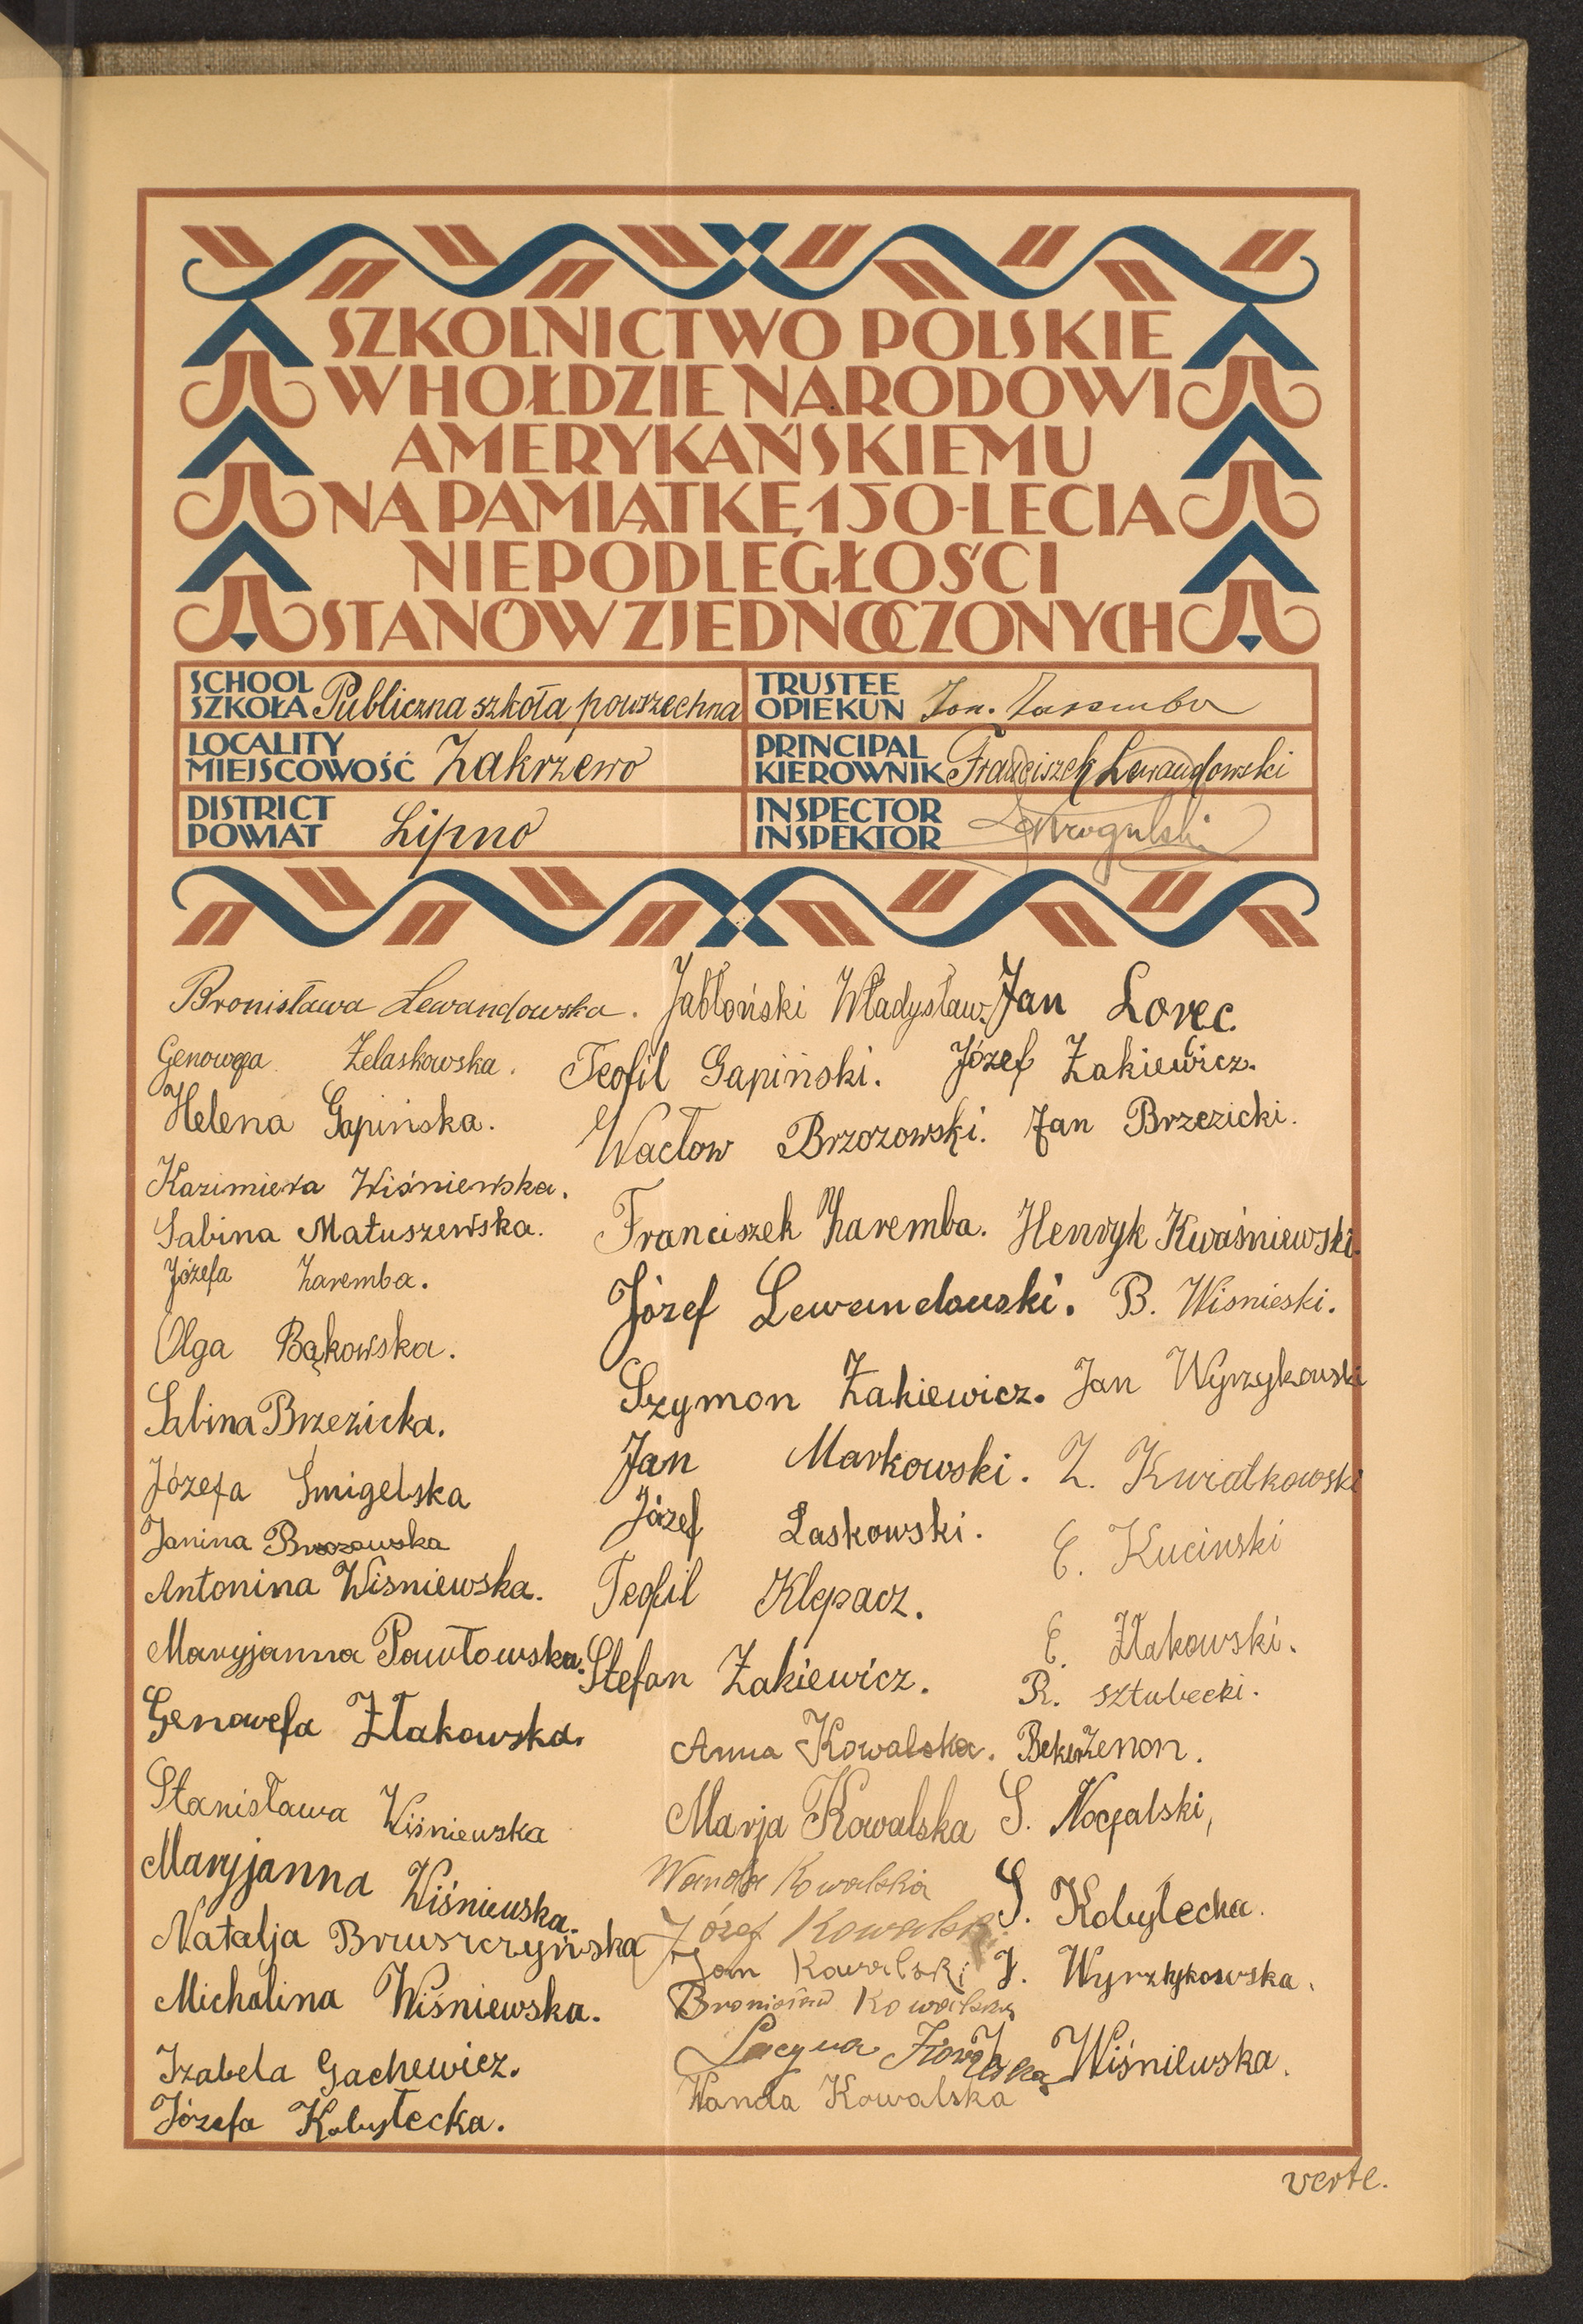 SZKOLNICTWO POLSKIE
W HOŁDZIE NARODOWI
AMERYKAŃSKIEMU
NA PAMIĄTKĘ 150-LECIA
NIEPODLEGŁOŚCI
STANÓW ZJEDNOCZONYCH
SCHOOL
SZKOŁA Publiczna szkoła powszechna
TRUSTEE
OPIEKUN Jan. Zaremba
LOCALITY
MIEJSCOWOŚĆ Zakrzewo
PRINCIPAL
KIEROWNIK Franciszek Lewandowski
DISTRICT
POWIAT Lipno
INSPECTOR
INSPEKTOR
Bronisława Lewandowska.
Genowefa Żelaskowska.
Helena Gapińska.
Kazimiera Wiśniewska.
Sabina Matuszewska.
Józefa Zaremba.
Olga Bąkowska.
Sabina Brzezicka.
Józefa Śmigelska
Janina Brzozowska
Antonina Wiśniewska.
Maryjanna Pawłowska.
Genowefa Złakowska.
Stanisława Wiśniewska
Maryjanna Wiśniewska.
Natalja Bruszczyńska
Michalina Wiśniewska.
Izabela Gachewicz.
Józefa Kobyłecka.
Jabłoński Władysław.
Teofil Gapiński.
Wacłow Brzozowski.
Franciszek Zaremba.
Józef Lewandowski.
Szymon Żakiewicz.
Jan Markowski.
Józef Laskowski.
Teofil Klepacz.
Stefan Żakiewicz.
Anna Kowalska.
Marja Kowalska
Wanda Kowalska
Józef Kowalski
Jan Kowalski
Bronisław Kowalski
Lucyna Kowalska
Wanda Kowalska
Jan Lorec.
Józef Żakiewicz.
Jan Brzezicki.
Henryk Kwaśniewski.
B. Wisnieski.
Jan Wyrzykowski
Z. Kwiatkowski
E. Kucinski
E. Złakowski.
R. sztubecki.
Beker Zenon.
S. Nocfalski,
S. Kobyłecka.
J. Wyrzykowska.
J. Wiśnilwska.
verte.